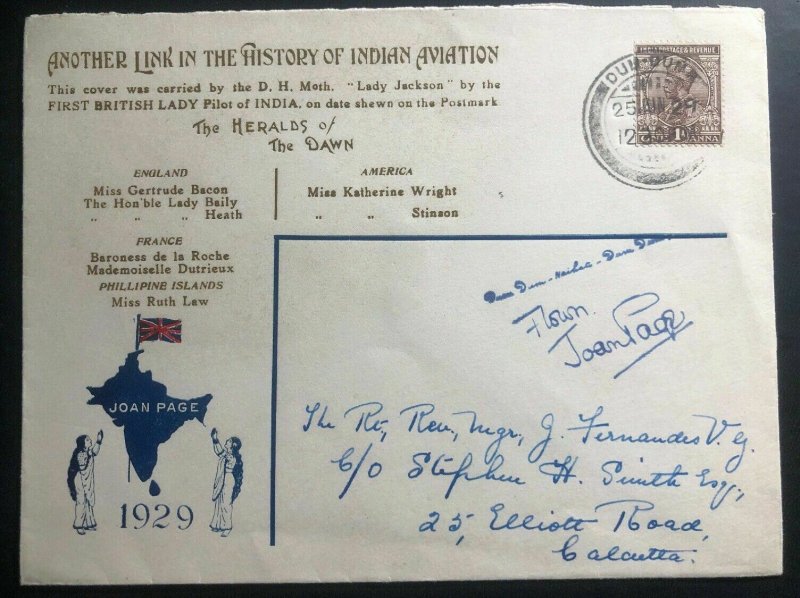 ANOTHER LINK IN THE HISTORY OF INDIAN AVIATION
This cover was carried by the D. H. Moth. "Lady Jackson" by the
FIRST BRITISH LADY Pilot of INDIA, on date shewn on the Postmark
The HERALDS of
The DAWN
ENGLAND
Miss Gertrude Bacon
The Hon'ble Lady Baily
" " " Heath
AMERICA
Miss Katherine Wright
" " Stinson
FRANCE
Baroness de la Roche
Mademoiselle Dutrieux
PHILLIPINE ISLANDS
Miss Ruth Law
JOAN PAGE
1929
INDIA POSTAGE & REVENUE
ONE 1A ANNA
DUM-DUM
25 29
12
Dum Dum - - Dum Dum
Flown.
Joan Page
The Rt, Rev, Mgr, J. Fernandes V. G.
C/O Stephen H. Smith Esq.,
25, Elliott Road,
Calcutta.